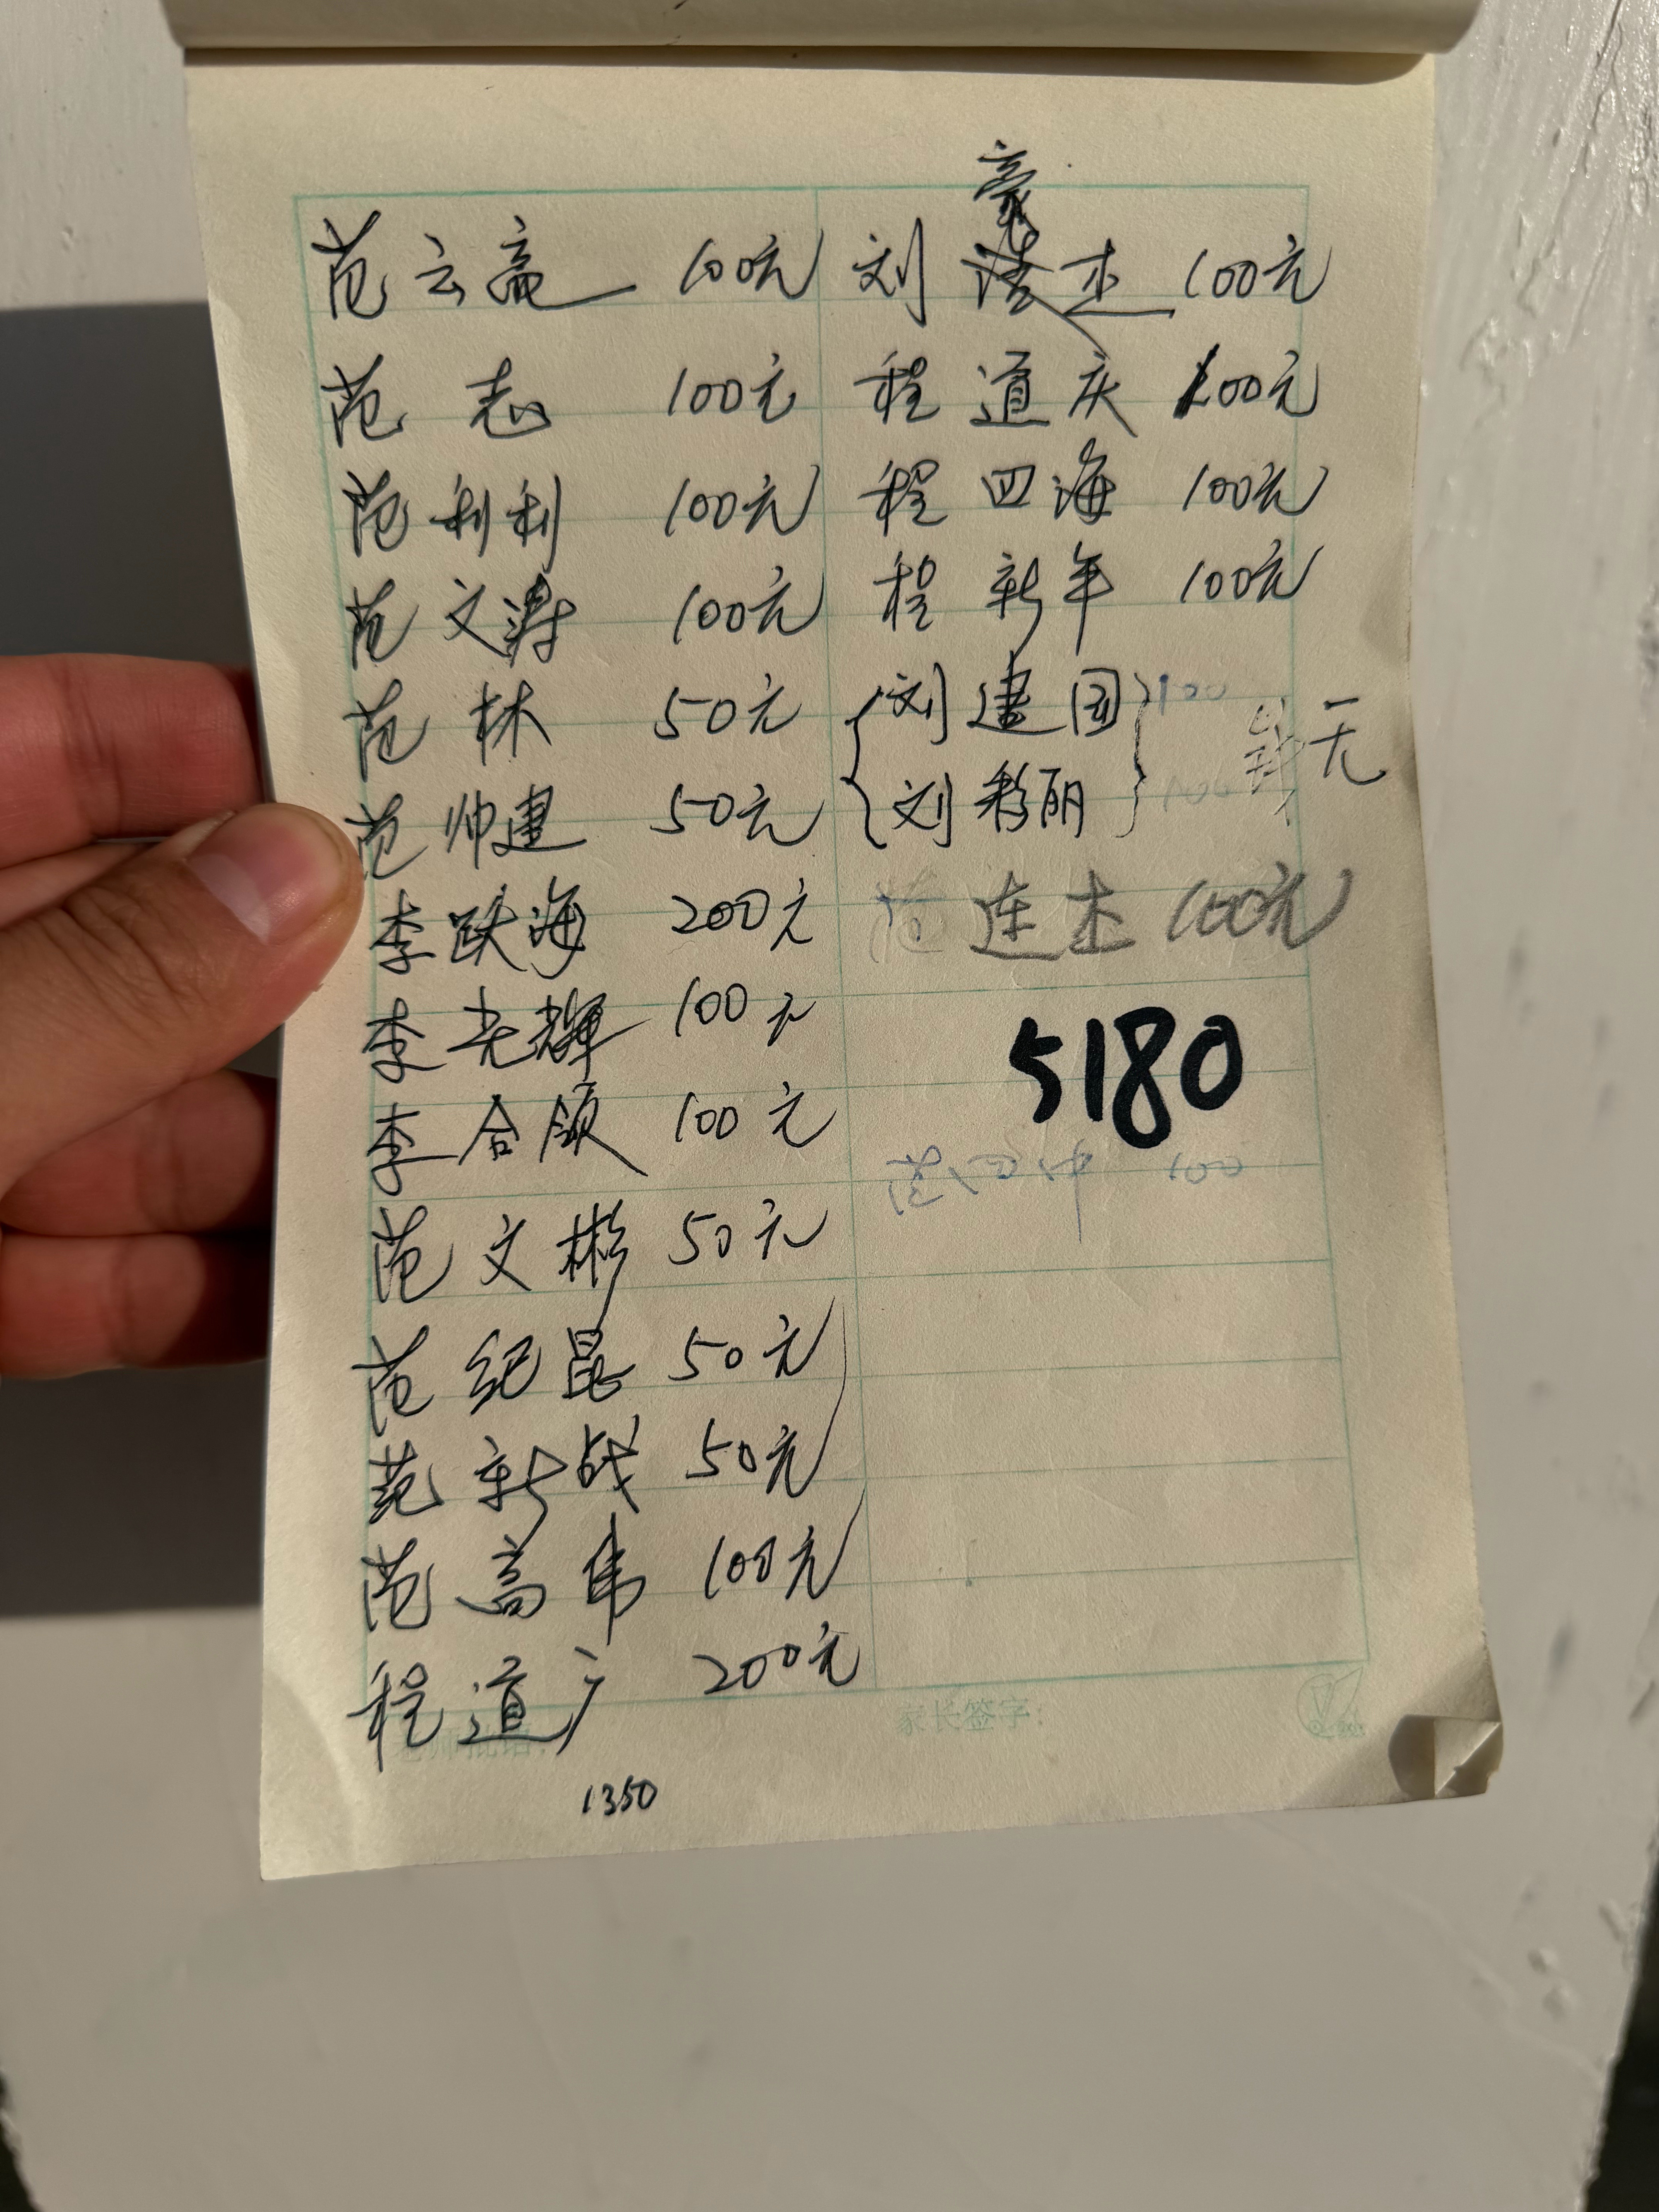 范云高 100元
范志 100元
范利利 100元
范文涛 100元
范林 50元
范帅建 50元
李跃海 200元
李光辉 100元
李合领 100元
范文彬 50元
范纪昆 50元
范新战 50元
范高伟 100元
程道广 200元
1350
豪
刘杰 100元
程道庆 100元
程四海 100元
程新年 100元
刘建国
刘彩丽
钱无
范连杰 100元
5180
家长签字: